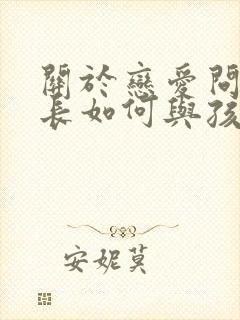 關於戀愛問
長如何與孩
安妮莫